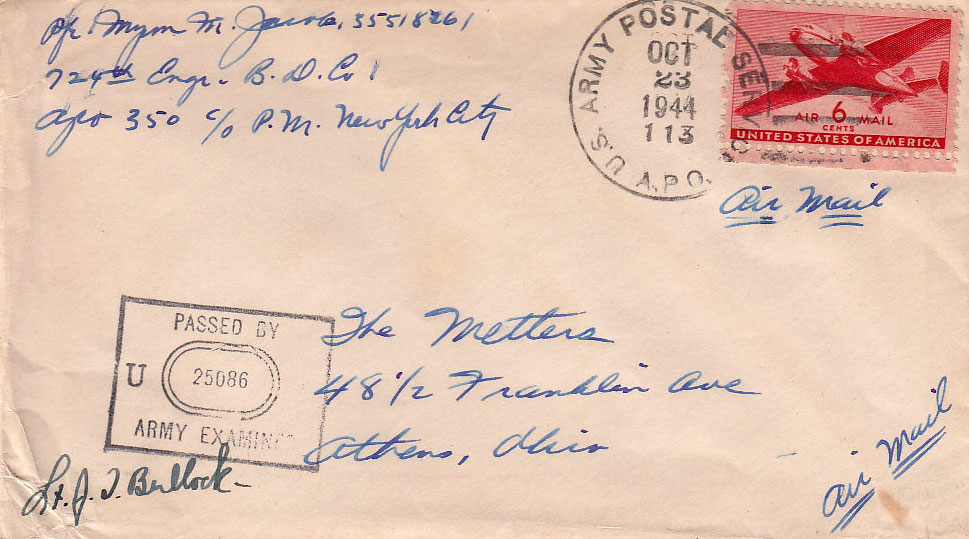 Pfc. Myron M. Jacobs, 35518261
724th Engr. B. D. Co 1
APO 350 c/o P.M. New York City
U.S. ARMY POSTAL SERVICE
OCT
23
1944
113
A.P.O.
AIR 6 MAIL
CENTS
UNITED STATES OF AMERICA
Air Mail
PASSED BY
U 25086
ARMY EXAMINE
The Metters
48 1/2 Franklin Ave
Athens, Ohio
Air Mail
Lt. J. T. Bullock